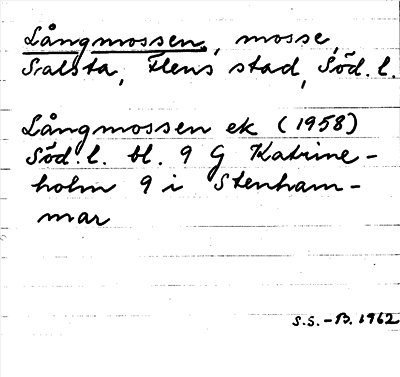 Långmossen, mosse,
Salsta, Flens stad, Söd. l.
Långmossen ek (1958)
Söd. l. bl. 9 G Katrine-
holm 9 i Stenham-
mar
S.S. - B. 1962